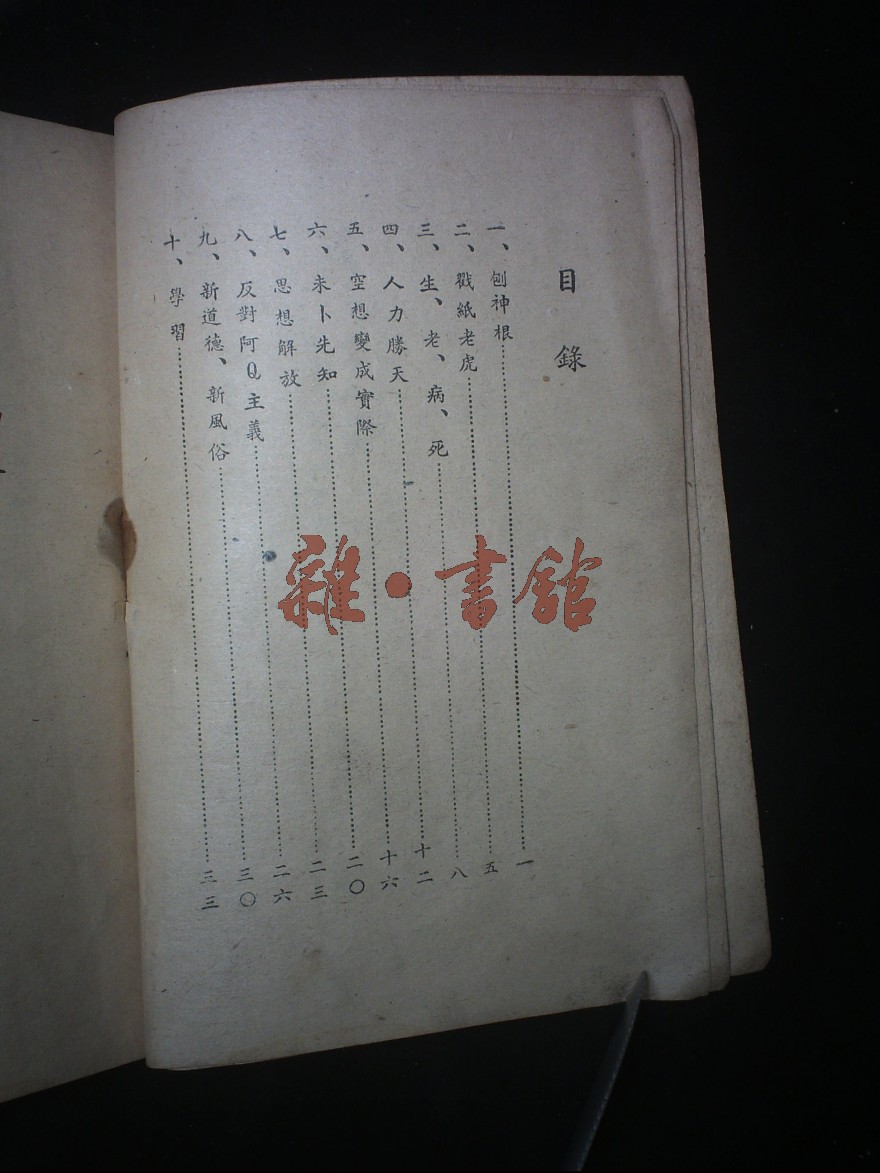 目錄
一、刨神根………一
二、戳紙老虎………五
三、生、老、病、死………八
四、人力勝天………十二
五、空想變成實際………十六
六、未卜先知………二〇
七、思想解放………二三
八、反對阿Q主義………二六
九、新道德、新風俗………三〇
十、學習………三三
雜·書館